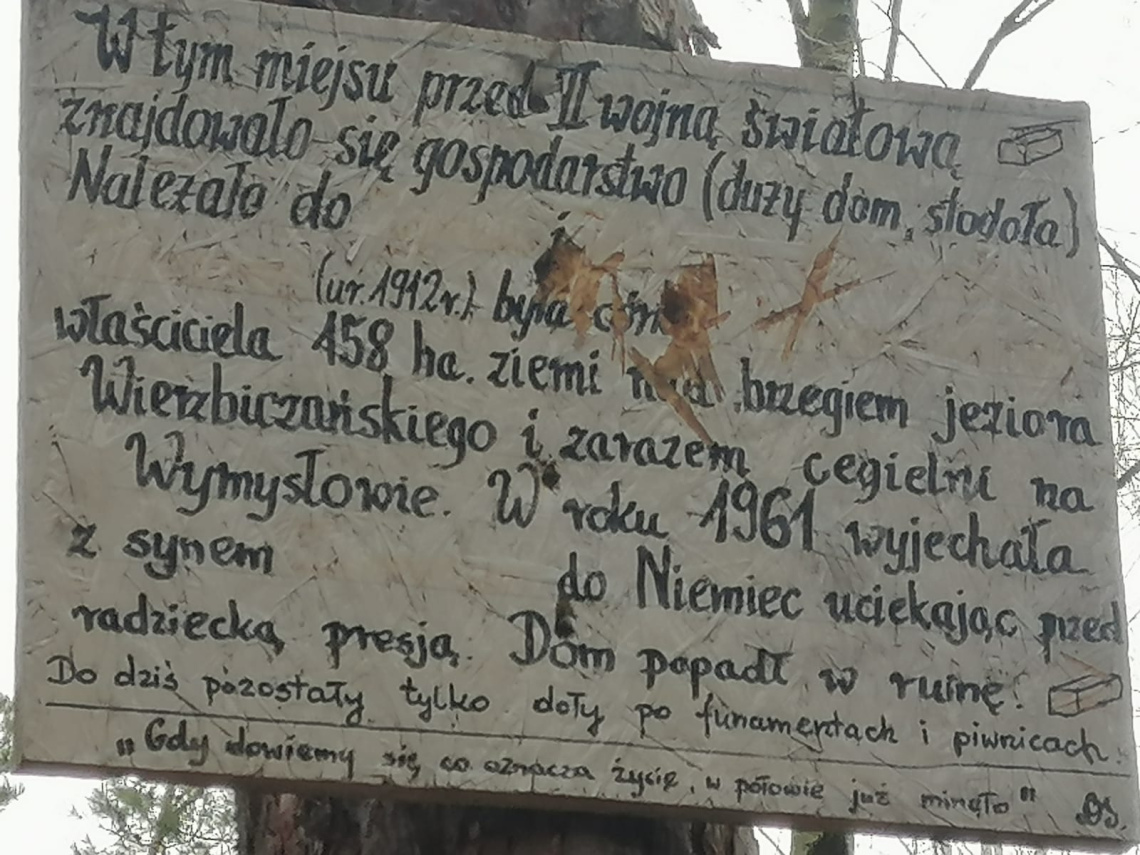 W tym miejsu przed II wojną światową
znajdowało się gospodarstwo (duży dom, stodoła)
Należało do
(ur. 1912r.) była
właściciela 158 ha. ziemi nad brzegiem jeziora
Wierzbiczańskiego i zarazem cegielni na
Wymysłowie. W roku 1961 wyjechała
z synem do Niemiec uciekając przed
radziecką presją. Dom popadł w ruinę.
Do dziś pozostały tylko doły po funamentach i piwnicach.
"Gdy dowiemy się co oznacza życie, w połowie już minęło"